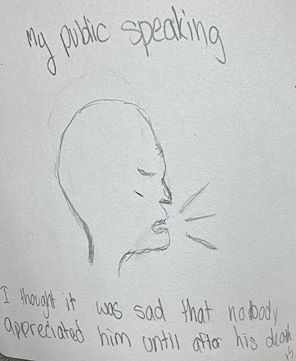 My public speaking
I thought it was sad that nobody
appreciated him until after his death